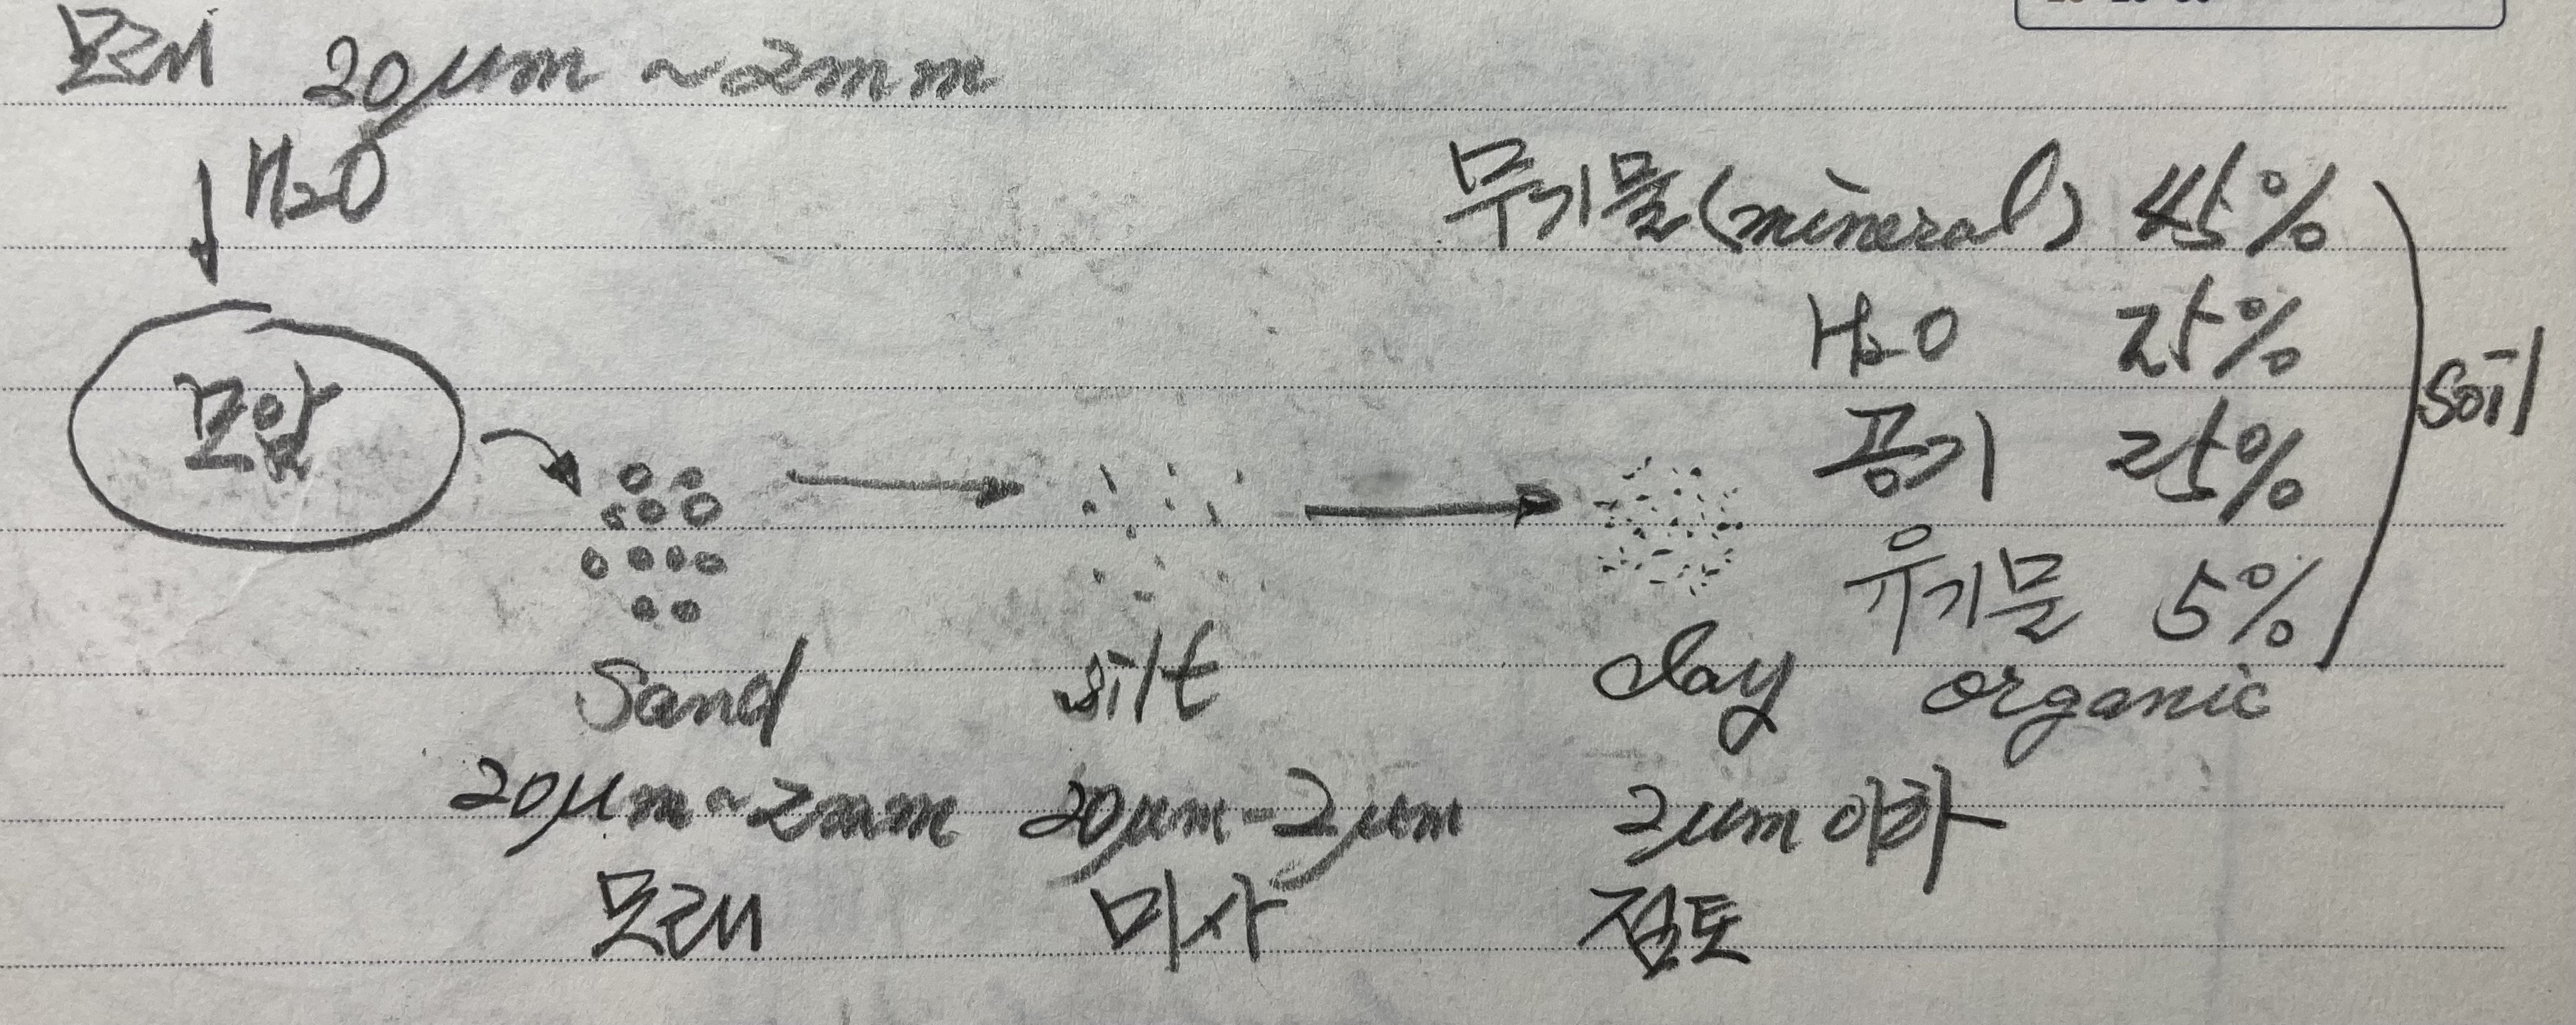 모래 20μm ~2mm
H2O
무기물(mineral) 45%
H2O 25%
공기 25%
유기물 5%
organic
soil
모암
Sand silt clay
20μm~2mm 20μm-2μm 2μm 이하
모래 미사 점토